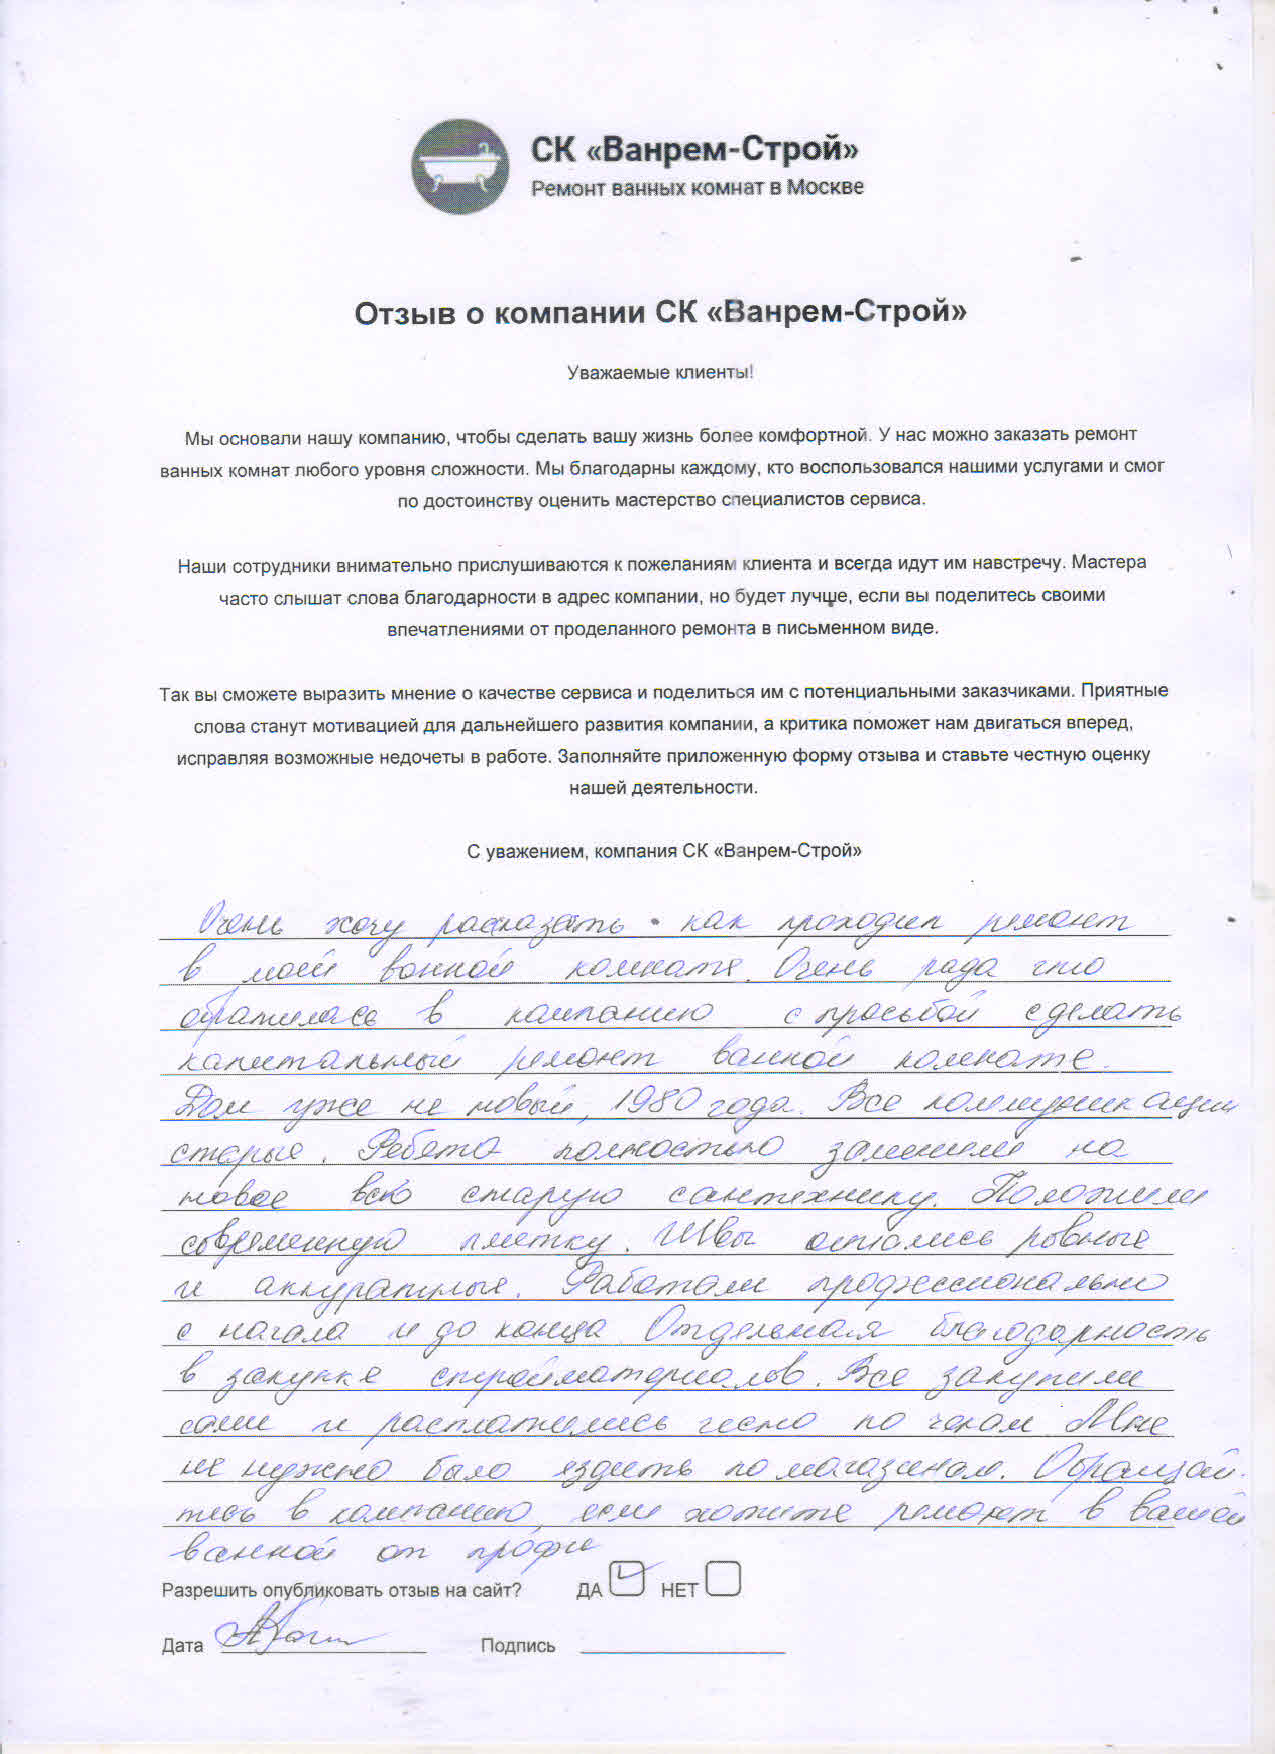 СК «Ванрем-Строй»
Ремонт ванных комнат в Москве
Отзыв о компании СК «Ванрем-Строй»
Уважаемые клиенты!
Мы основали нашу компанию, чтобы сделать вашу жизнь более комфортной. У нас можно заказать ремонт
ванных комнат любого уровня сложности. Мы благодарны каждому, кто воспользовался нашими услугами и смог
по достоинству оценить мастерство специалистов сервиса.
Наши сотрудники внимательно прислушиваются к пожеланиям клиента и всегда идут им навстречу. Мастера
часто слышат слова благодарности в адрес компании, но будет лучше, если вы поделитесь своими
впечатлениями от проделанного ремонта в письменном виде.
Так вы сможете выразить мнение о качестве сервиса и поделиться им с потенциальными заказчиками. Приятные
слова станут мотивацией для дальнейшего развития компании, а критика поможет нам двигаться вперед,
исправляя возможные недочеты в работе. Заполняйте приложенную форму отзыва и ставьте честную оценку
нашей деятельности.
С уважением, компания СК «Ванрем-Строй»
Очень хочу рассказать как проходил ремонт
в моей ванной комнате. Очень рада что
обратилась в компанию с просьбой сделать
капитальный ремонт ванной комнате.
Дом уже не новый, 1980 года. Все коммуникации
старые. Ребята полностью заменили на
новое всю старую сантехнику. Положили
современную плитку. Швы остались ровные
и аккуратные. Работали профессионально
с начала и до конца. Отдельная благодарность
в закупке стройматериалов. Все закупили
сами и расплатились чесно по чекам Мне
не нужно было ездить по магазинам. Обращай-
тесь в компанию, если хотите ремонт в вашей
ванной от профи
Разрешить опубликовать отзыв на сайт? ДА НЕТ
Дата Подпись